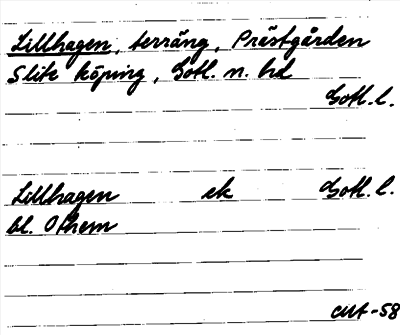 Lillhagen, terräng, Prästgården
Slite köping, Gotl. n. hd
Gotl. l.
Lillhagen ek Gotl. l.
bl. Othem
CUA-58